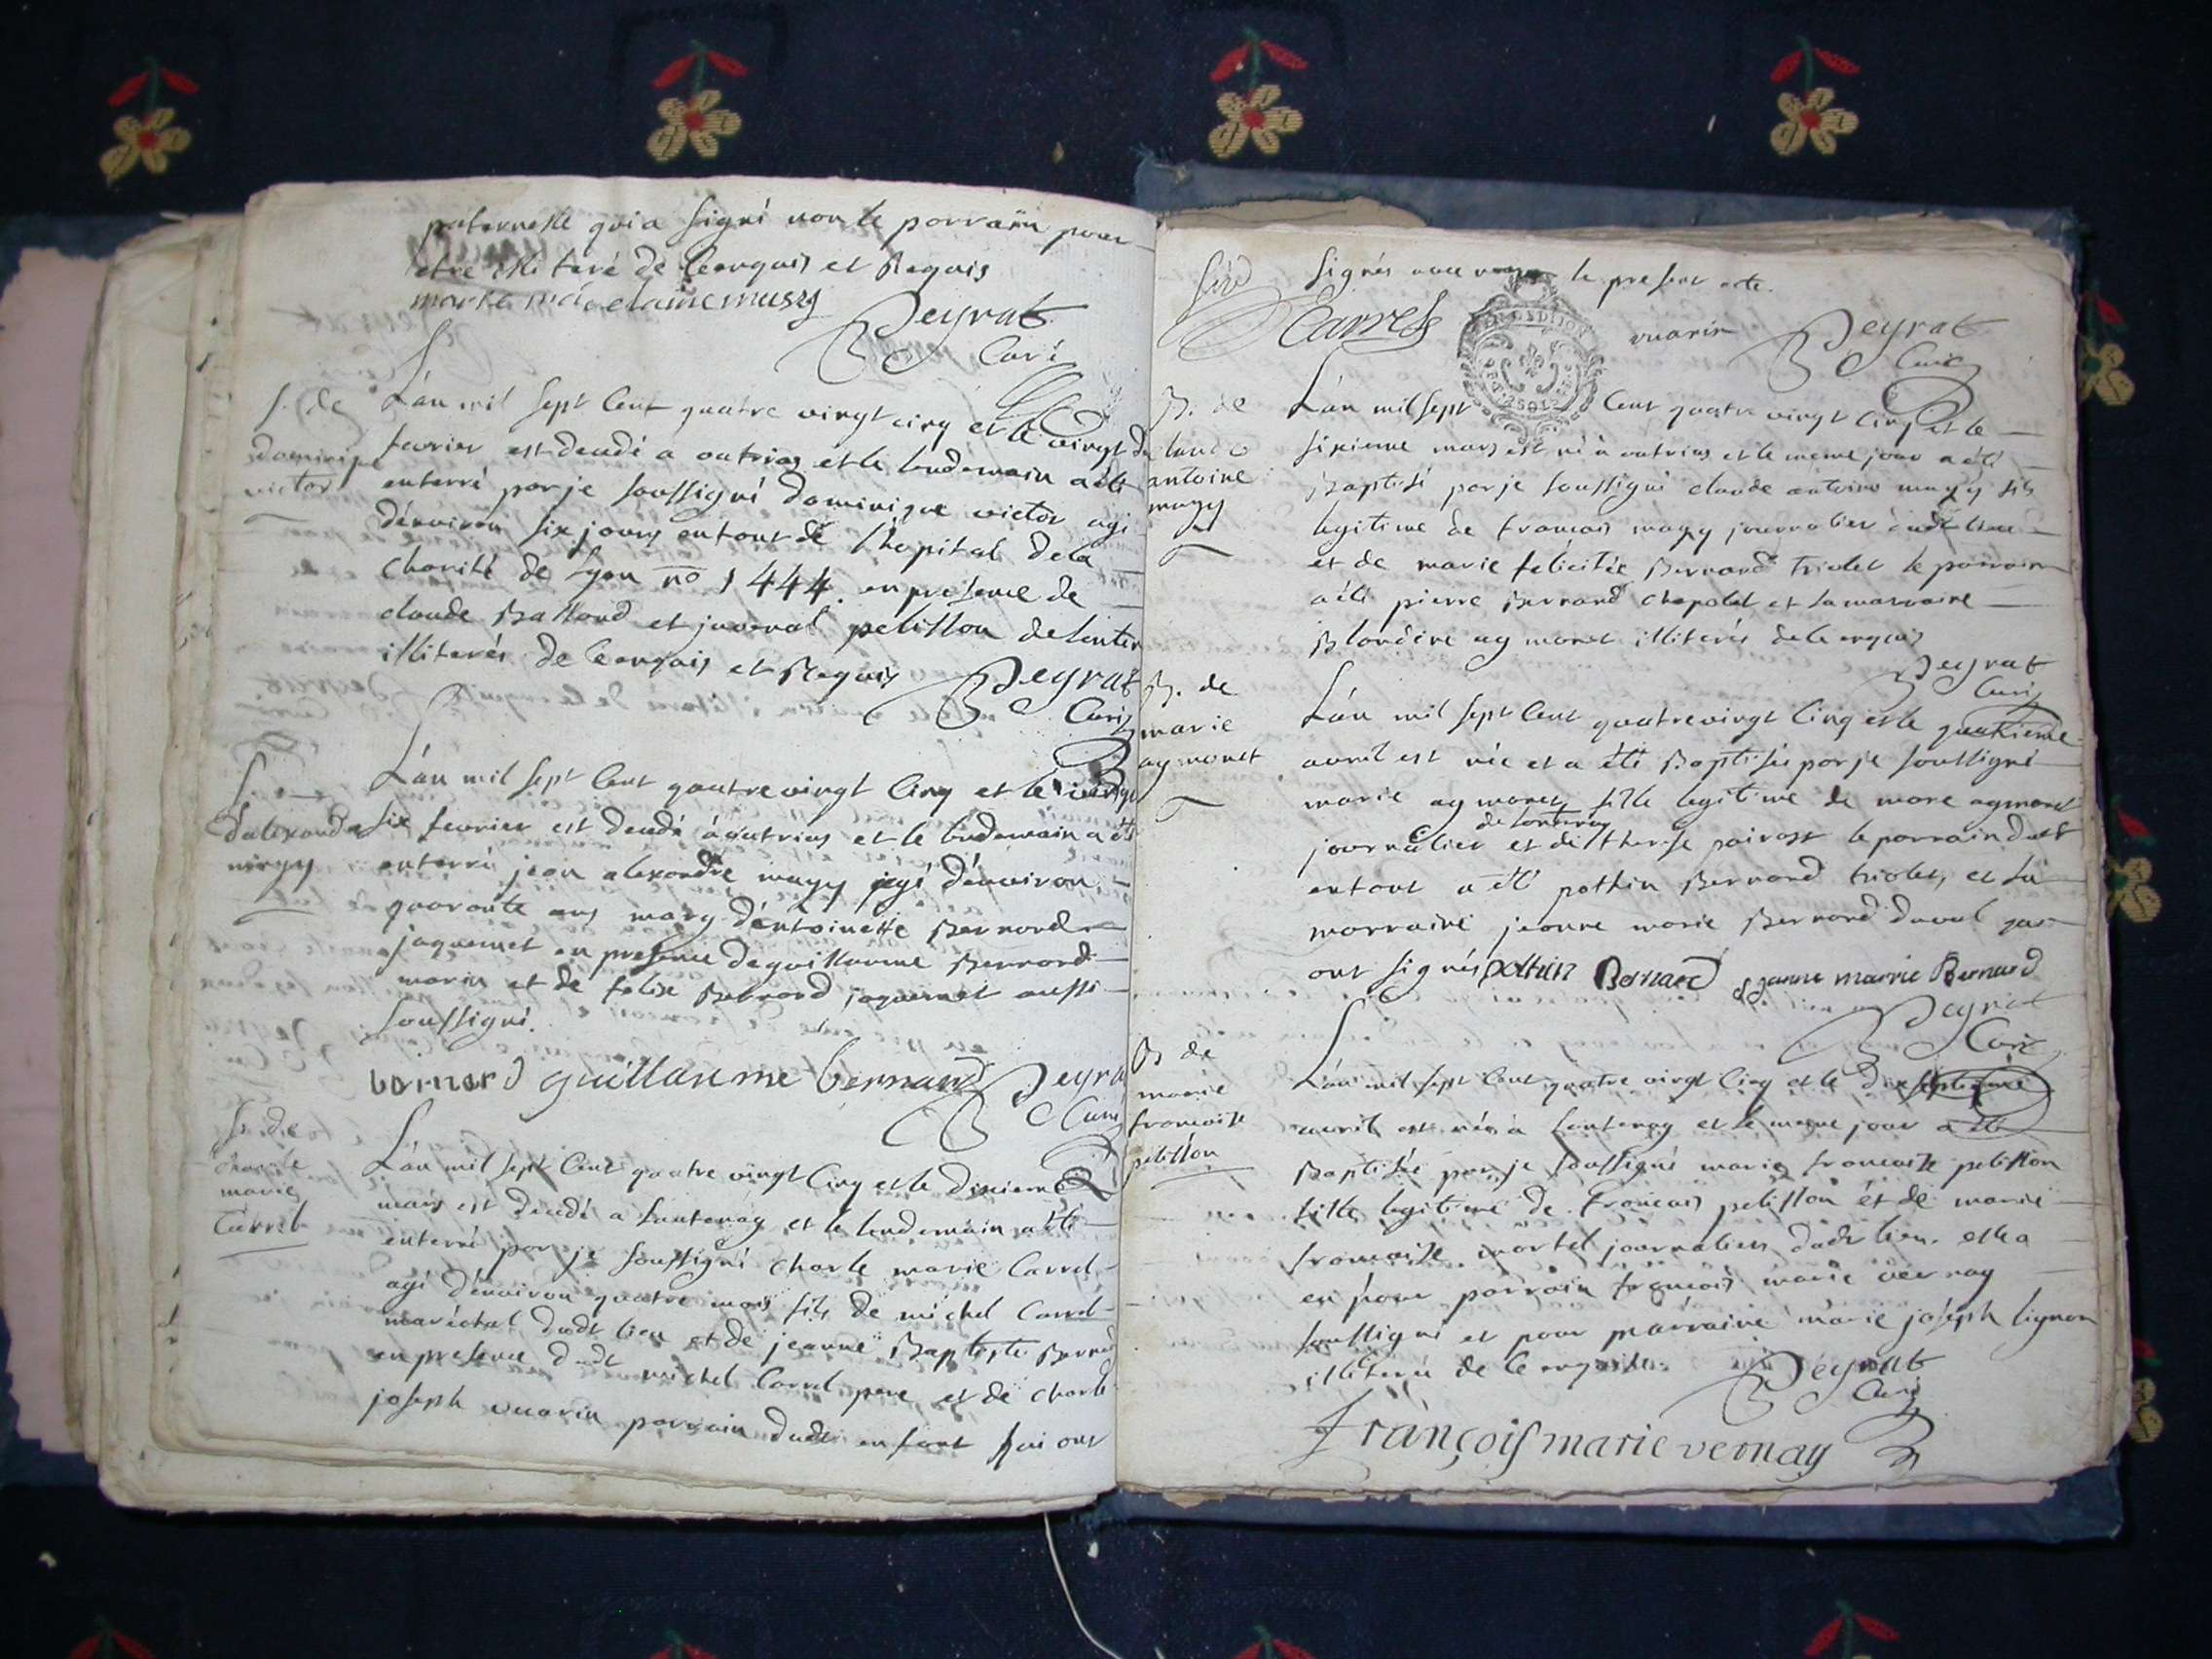 paternelle qui a signé non le porrain pour
etre illiteré de ce enquis et Requis
marie madelaine mussy
Peyrat
Curé
s. de
dominique
victor
L'an mil sept Cent quatre vingt cinq et le vingt
fevrier est decedé a outrias et le lendemain a été
enterré par je soussigné dominique victor agé
d'environ six jours enfant de l'hopital de la
charité de Lyon no 1444. en presence de
claude Ballond et juvenal pelisson de lenten
illiterés de ce enquis et Requis
Peyrat
Curé
S.
d'alexandre
mugy
L'an mil sept Cent quatre vingt Cinq et le vingt
six fevrier est decedé à outrias et le lendemain a été
enterré jean alexandre mugy agé d'environ
quarante ans mary d'entoinette Bernard
jaquemet en presence de guillaume Bernard
marin et de felix Bernard jaquemet aussi
soussigné.
bernard guillaume bernard Peyrat
Curé
S. de
charle
marie
Carrel
L'an mil sept Cent quatre vingt Cinq et le dixieme
mars est decedé a Lantenay et le lendemain a été
enterré par je soussigné charle marie Carrel
agé d'environ quatre mois fils de michel Carrel
maréchal dudt lieu et de jeanne Baptiste Bernard
en presence dudt michel Carrel pere et de charle
joseph vuarin porrain dudt enfant qui ont
signés avec le present acte.
Carrel
vuarin
Peyrat
Curé
B. de
claude
antoine
mugy
L'an mil sept Cent quatre vingt Cinq et le
sixieme mars est né à outrias et le meme jour a été
Baptisé par je soussigné claude antoine mugy fils
legitime de francois mugy journalier dudt lieu
et de marie felicitée Bernard triolet le porrain
a été pierre Bernard chapolet et la marraine
Blandine aymonet illiterés de ce enquis
Peyrat
Curé
B. de
marie
aymonet
L'an mil sept Cent quatre vingt Cinq et le quatrieme
avril est née et a été Baptisée par je soussigné
marie aymonet fille legitime de marc aymonet
de lantenay
journalier et de therese poirost le porrain dudt
enfant a été pothin Bernard triolet, et la
marraine jeanne marie Bernard duval qui
ont signés pothin Bernard jeanne marrie Bernard
Peyrat
Curé
B de
marie
francoise
pelisson
L'an mil sept Cent quatre vingt Cinq et le dix septieme
avril est née à Lantenay et le meme jour a été
Baptisée par je soussigné marie francoise pelisson
fille legitime de francois pelisson et de marie
francoise mortel journaliers dudt lieu. elle a
eu pour porrain francois marie vernay
soussigné et pour marraine marie joseph lignon
illiterée de ce enquise.
Peyrat
Curé
françois marie vernay